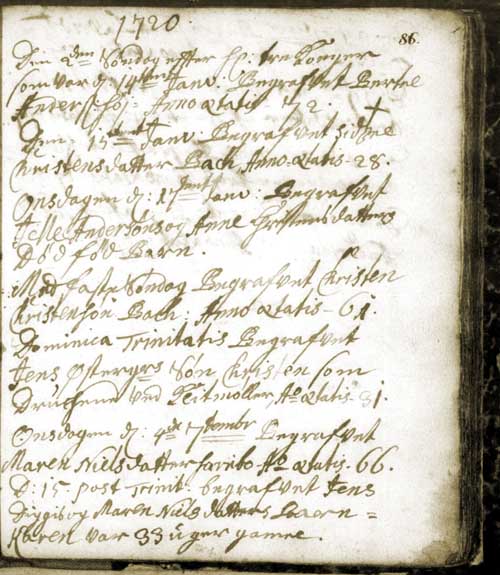 1720.
86.
Den 2den Søndag effter h: tre Konger
som var d: 14ten Janv. Begrafvet Bertel
Anno ætatis. 72.
15 Janv: Begrafvet
Christensdatter Bach, Anno ætatis. 28.
Onsdagen d: 17 Janv: Begrafvet
Andersøns og Anne Christensdatters
Død fød Barn.
Mid faste Søndag Begrafvet Christen
Christensøn Bach: Anno ætatis - 61.
Dominica Trinitatis Begrafvet
Jens Søn Christen som
Druchene ved Klitmøller, Aō ætatis. 31.
Onsdagen d: 4de 7tembr Begrafvet
Maren Nielsdatter Aō ætatis. 66.
D: 15. post Trinit: begrafvet Jens
og Maren Niels datters barn =
Karen var 33 uger gamel.